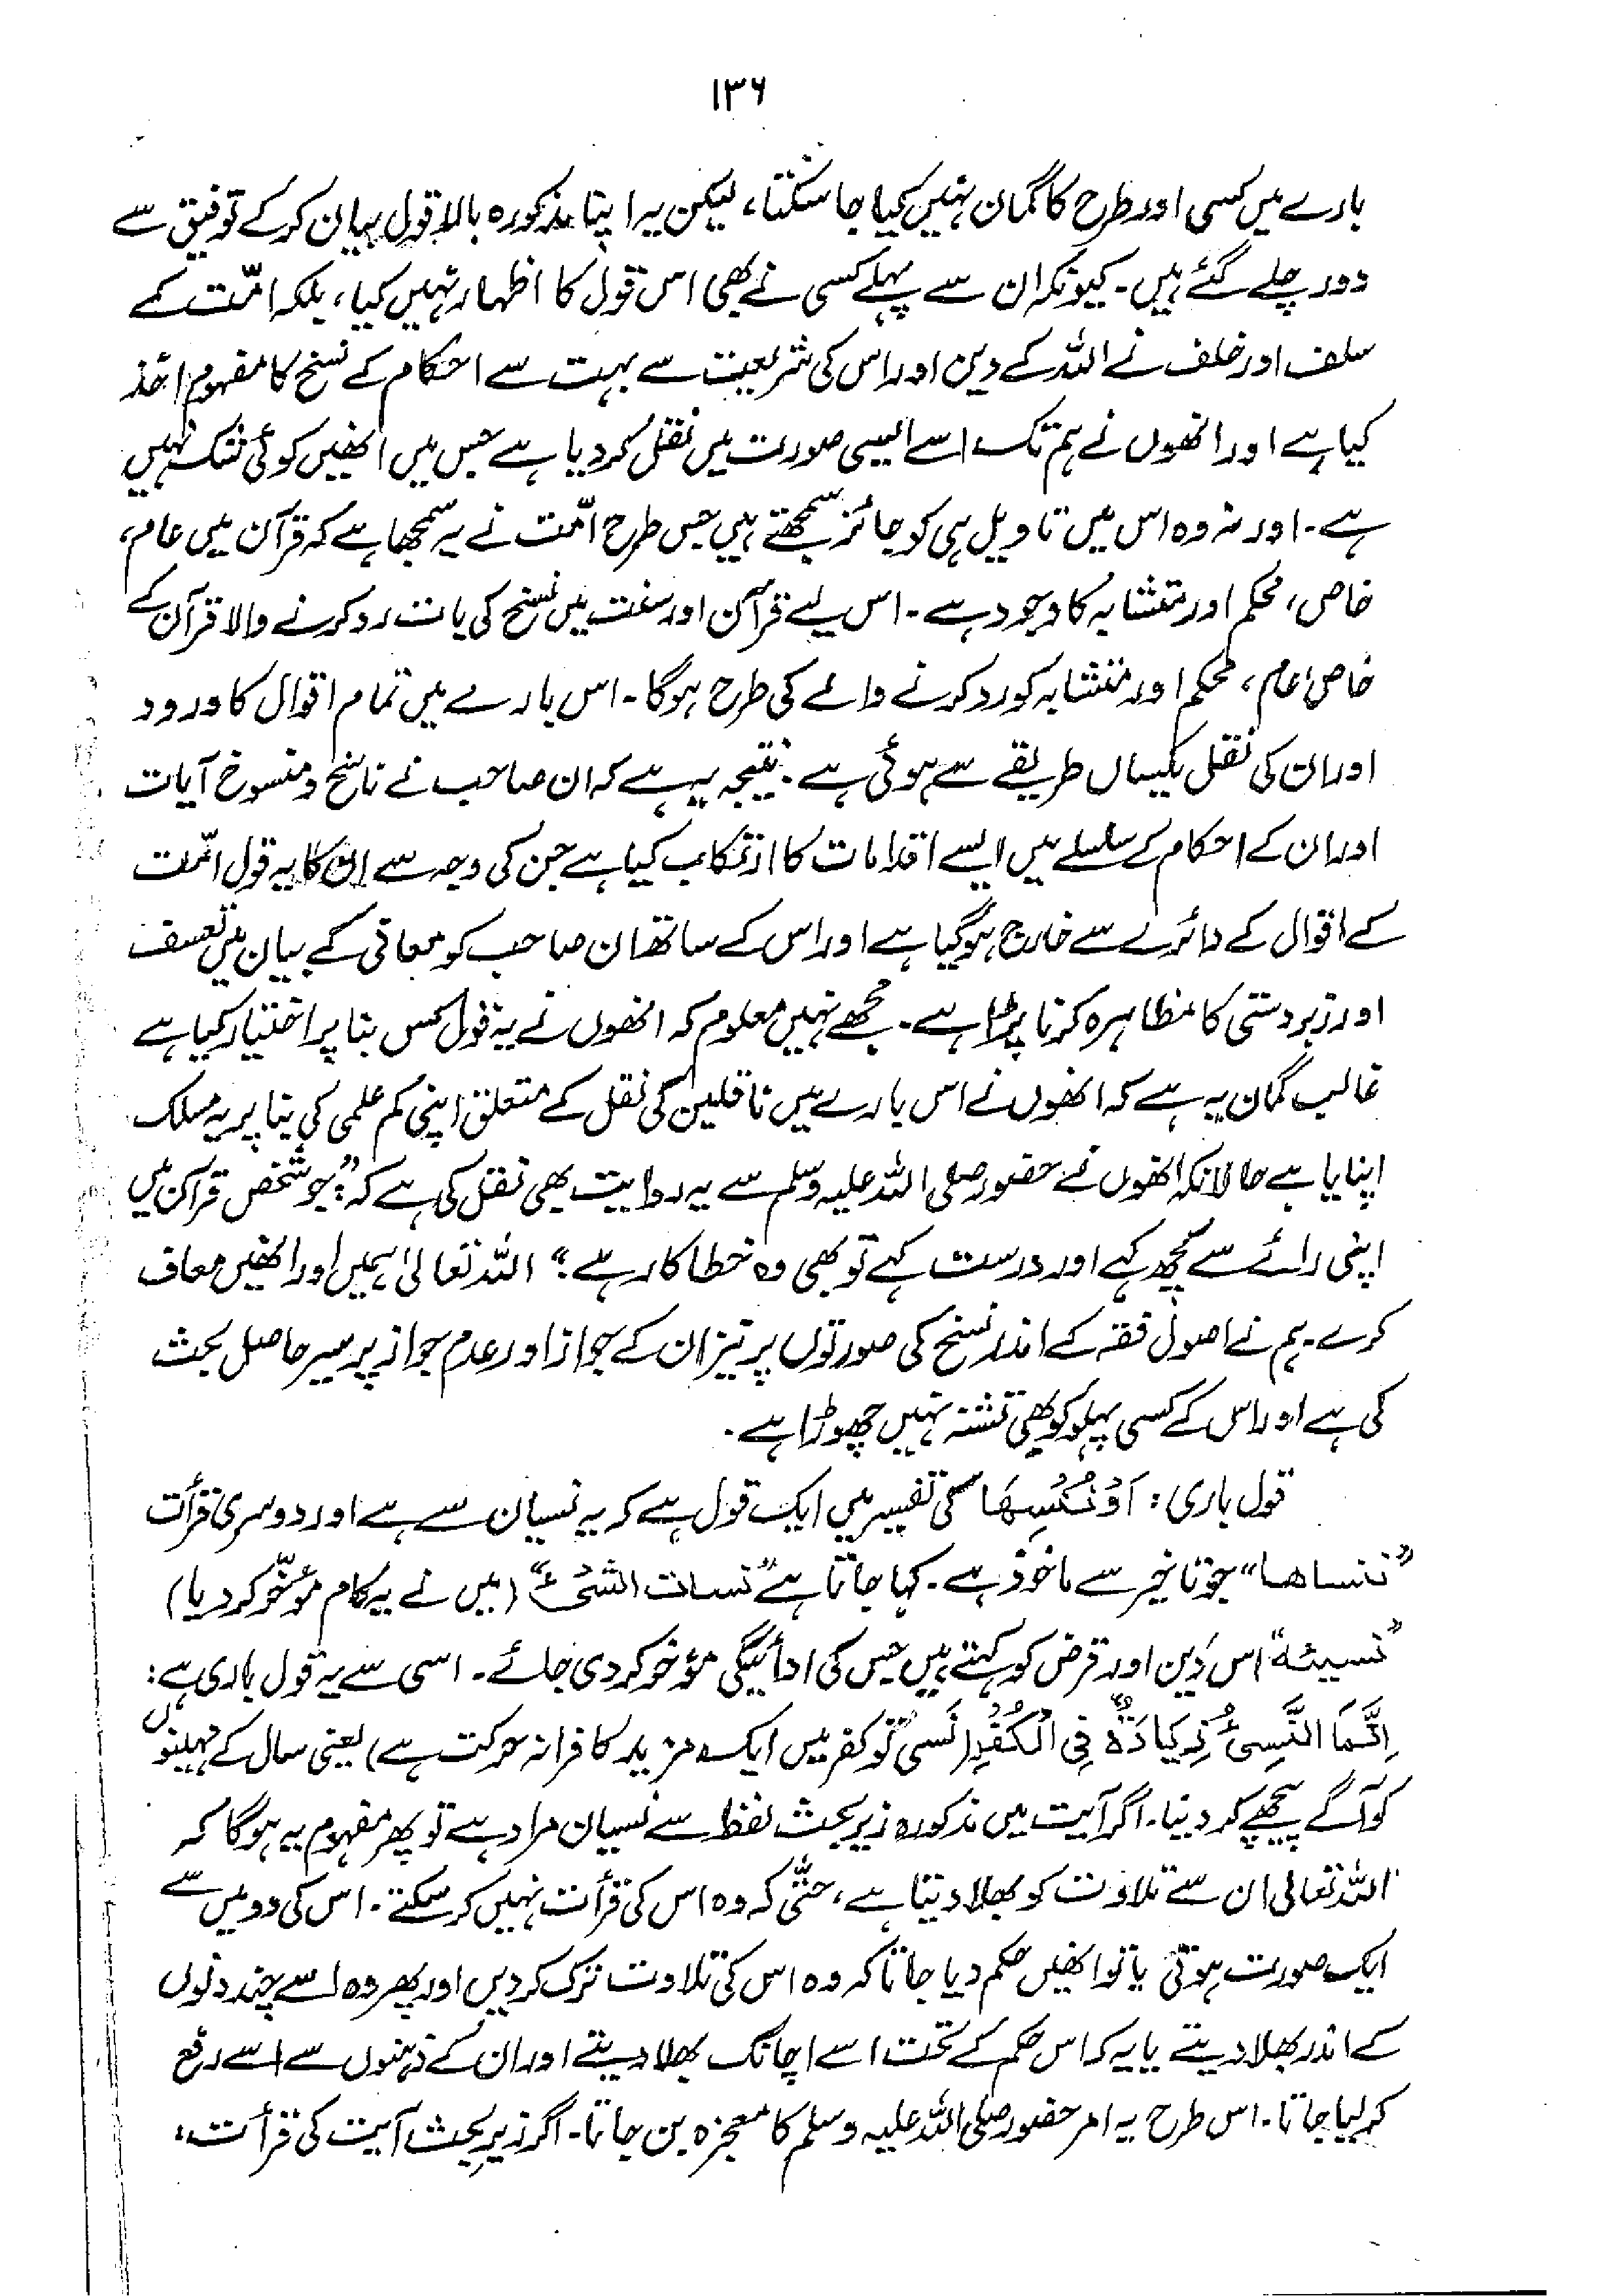 ۱۳۶
بارے میں کسی اور طرح کا گمان نہیں کیا جا سکتا، لیکن یہ اپنا مذکورہ بالا قول بیان کر کے توفیق سے
دور چلے گئے ہیں۔ کیونکہ ان سے پہلے کسی نے بھی اس قول کا اظہار نہیں کیا، بلکہ امّت کے
سلف اور خلف نے اللہ کے دین اور اس کی شریعت سے بہت سے احکام کے نسخ کا مفہوم اخذ
کیا ہے اور انھوں نے ہم تک اسے ایسی صورت میں نقل کر دیا ہے جس میں انھیں کوئی شک نہیں
ہے۔ اور نہ وہ اس میں تاویل ہی کو جائز سمجھتے ہیں جس طرح امّت نے یہ سمجھا ہے کہ قرآن میں عام،
خاص، محکم اور متشابہ کا وجود ہے۔ اس لیے قرآن اور سنت میں نسخ کی بات رد کرنے والا قرآن کے
خاص، عام، محکم اور متشابہ کو رد کرنے والے کی طرح ہوگا۔ اس بارے میں تمام اقوال کا ورود
اور ان کی نقل یکساں طریقے سے ہوئی ہے۔ نتیجہ یہ ہے کہ ان صاحب نے ناسخ و منسوخ آیات
اور ان کے احکام کے سلسلے میں ایسے اقدامات کا ارتکاب کیا ہے جن کی وجہ سے ان کا یہ قول امّت
کے اقوال کے دائرے سے خارج ہو گیا ہے اور اس کے ساتھ ان صاحب کو معانی کے بیان میں تعسف
اور زبردستی کا مظاہرہ کرنا پڑا ہے۔ مجھے نہیں معلوم کہ انھوں نے یہ قول کس بنا پر اختیار کیا ہے
غالب گمان یہ ہے کہ انھوں نے اس بارے میں ناقلین کی نقل کے متعلق اپنی کم علمی کی بنا پر یہ مسلک
اپنایا ہے حالانکہ انھوں نے حضور صلی اللہ علیہ وسلم سے یہ روایت بھی نقل کی ہے کہ: "جو شخص قرآن میں
اپنی رائے سے کچھ کہے اور درست کہے تو بھی وہ خطا کار ہے" اللہ تعالیٰ ہمیں اور انھیں معاف
کرے۔ ہم نے اصول فقہ کے اندر نسخ کی صورتوں پر نیز ان کے جواز اور عدم جواز پر سیر حاصل بحث
کی ہے اور اس کے کسی پہلو کو بھی تشنہ نہیں چھوڑا ہے۔
قول باری: اَوْ نُنْسِهَا کی تفسیر میں ایک قول ہے کہ یہ نسیان سے ہے اور دوسری قرأت
"ننساها" جو تاخیر سے ماخوذ ہے۔ کہا جاتا ہے "نسات الشیٔ" (میں نے یہ کام مؤخّر کر دیا)
"نسیئة" اس دَین اور قرض کو کہتے ہیں جس کی ادائیگی مؤخر کر دی جائے۔ اسی سے یہ قول باری ہے:
اِنَّمَا النَّسِیْٓءُ زِیَادَةٌ فِی الْکُفْرِ (نَسی تو کفر میں ایک مزید کافرانہ حرکت ہے) یعنی سال کے مہینوں
کو آگے پیچھے کر دینا۔ اگر آیت میں مذکورہ زیر بحث لفظ سے نسیان مراد ہے تو پھر مفہوم یہ ہوگا کہ
اللہ تعالیٰ ان سے تلاوت کو بھلا دیتا ہے، حتّٰی کہ وہ اس کی قرأت نہیں کر سکتے۔ اس کی دو میں سے
ایک صورت ہوتی یا تو انھیں حکم دیا جاتا کہ وہ اس کی تلاوت ترک کر دیں اور پھر وہ اسے چند دنوں
کے اندر بھلا دیتے یا یہ کہ اس حکم کے تحت اسے اچانک بھلا دیتے اور ان کے ذہنوں سے اسے رفع
کر لیا جاتا۔ اس طرح یہ امر حضور صلی اللہ علیہ وسلم کا معجزہ بن جاتا۔ اگر زیرِ بحث آیت کی قرأت،